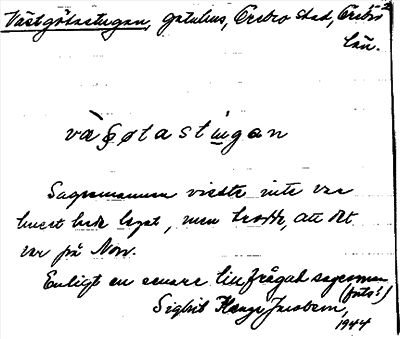 Västgötastugan, gatulius, Örebro stad, Örebro
län.
vàsgøtastugan
Sagesmannen visste inte var
huset hade legat, men trodde, att det
var på Norr.
Enligt en senare tillfrågad sagesman
(fotn!)
Sigbrit Jacobson,
1944